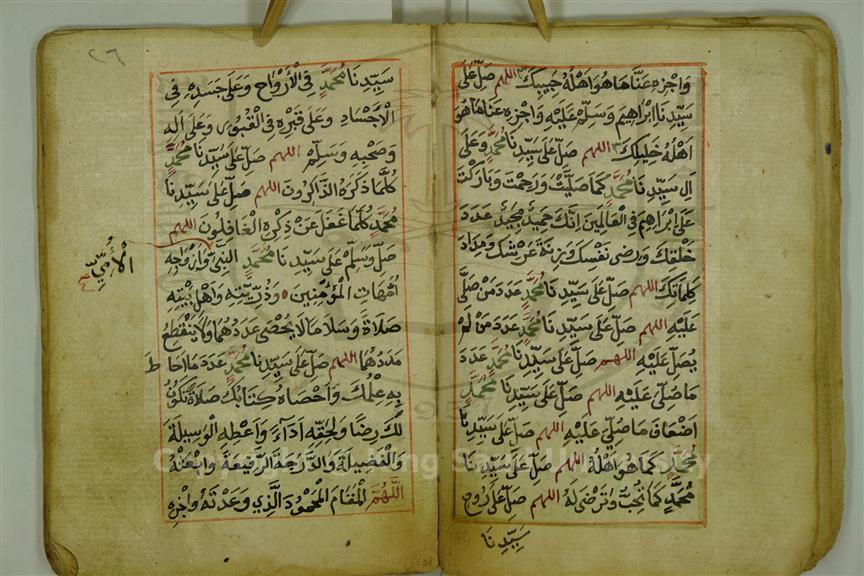 وَاجْزِهِ عَنَّا مَا هُوَ اَهْلُهُ حَبِيبِكَ اللهم صَلِّ عَلَى
سَيِّدِنَا اِبْرَاهِيمَ وَسَلِّمْ عَلَيْهِ وَاجْزِهِ عَنَّا مَا هُوَ
اَهْلُهُ خَلِيلِكَ اللهم صَلِّ عَلَى سَيِّدِنَا مُحَمَّدٍ وَعَلَى
اٰلِ سَيِّدِنَا مُحَمَّدٍ كَمَا صَلَّيْتَ وَرَحِمْتَ وَبَارَكْتَ
عَلَى اِبْرَاهِيمَ فِي الْعَالَمِينَ اِنَّكَ حَمِيدٌ مَجِيدٌ عَدَدَ
خَلْقِكَ وَرِضَى نَفْسِكَ وَزِنَةَ عَرْشِكَ وَمِدَادَ
كَلِمَاتِكَ اللهم صَلِّ عَلَى سَيِّدِنَا مُحَمَّدٍ عَدَدَ مَنْ صَلَّى
عَلَيْهِ اللهم صَلِّ عَلَى سَيِّدِنَا مُحَمَّدٍ عَدَدَ مَنْ لَمْ
يُصَلِّ عَلَيْهِ اللهم صَلِّ عَلَى سَيِّدِنَا مُحَمَّدٍ عَدَدَ
مَا صُلِّيَ عَلَيْهِ اللهم صَلِّ عَلَى سَيِّدِنَا مُحَمَّدٍ
اَضْعَافَ مَا صُلِّيَ عَلَيْهِ اللهم صَلِّ عَلَى سَيِّدِنَا
مُحَمَّدٍ كَمَا هُوَ اَهْلُهُ اللهم صَلِّ عَلَى سَيِّدِنَا
مُحَمَّدٍ كَمَا تُحِبُّ وَتَرْضَى لَهُ اللهم صَلِّ عَلَى رُوحِ
سَيِّدِنَا
٢٦
سَيِّدِنَا مُحَمَّدٍ فِي الْاَرْوَاحِ وَعَلَى جَسَدِهِ فِي
الْاَجْسَادِ وَعَلَى قَبْرِهِ فِي الْقُبُورِ وَعَلَى اٰلِهِ
وَصَحْبِهِ وَسَلِّمْ اللهم صَلِّ عَلَى سَيِّدِنَا مُحَمَّدٍ
كُلَّمَا ذَكَرَهُ الذَّاكِرُونَ اللهم صَلِّ عَلَى سَيِّدِنَا
مُحَمَّدٍ كُلَّمَا غَفَلَ عَنْ ذِكْرِهِ الْغَافِلُونَ اللهم
صَلِّ وَسَلِّمْ عَلَى سَيِّدِنَا مُحَمَّدٍ النَّبِيِّ وَاَزْوَاجِهِ
الْاُمِّيِّ صح
اُمَّهَاتِ الْمُؤْمِنِينَ وَذُرِّيَّتِهِ وَاَهْلِ بَيْتِهِ
صَلَاةً وَسَلَامًا لَا يُحْصَى عَدَدُهُمَا وَلَا يَنْقَطِعُ
مَدَدُهُمَا اللهم صَلِّ عَلَى سَيِّدِنَا مُحَمَّدٍ عَدَدَ مَا اَحَاطَ
بِهِ عِلْمُكَ وَاَحْصَاهُ كِتَابُكَ صَلَاةً تَكُونُ
لَكَ رِضًا وَلِحَقِّهِ اَدَاءً وَاَعْطِهِ الْوَسِيلَةَ
وَالْفَضِيلَةَ وَالدَّرَجَةَ الرَّفِيعَةَ وَابْعَثْهُ
اللَّهُمَّ الْمَقَامَ الْمَحْمُودَ الَّذِي وَعَدْتَهُ وَاجْزِهِ